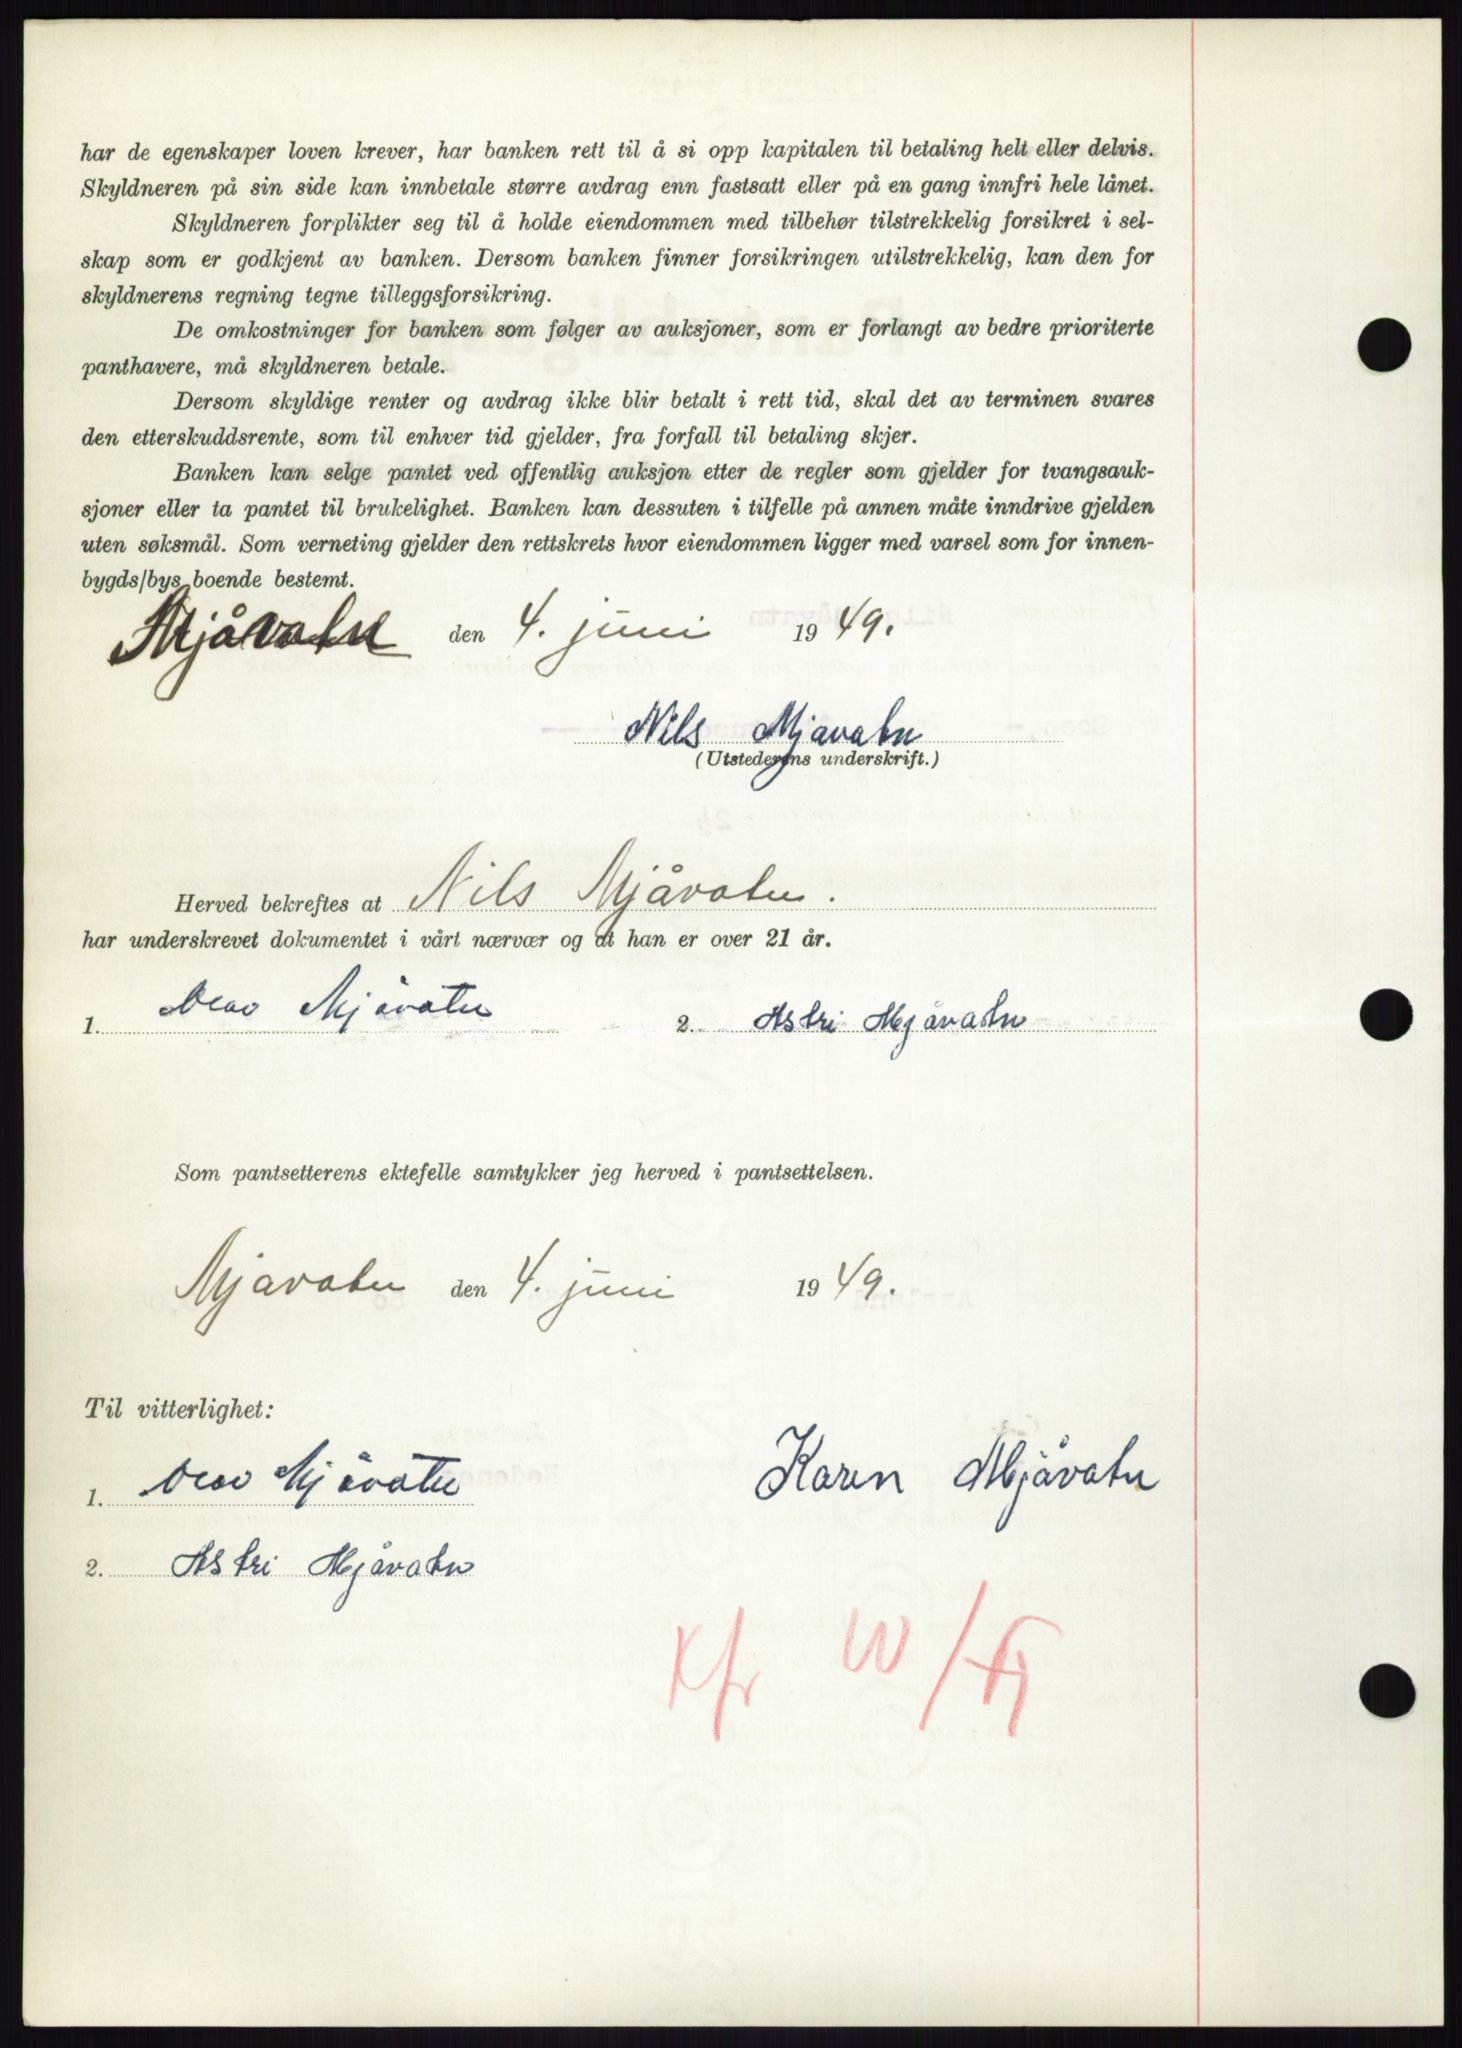 har de egenskaper loven krever, har banken rett til å si opp kapitalen til betaling helt eller delvis.
Skyldneren på sin side kan innbetale større avdrag enn fastsatt eller på en gang innfri hele lånet.
Skyldneren forplikter seg til å holde eiendommen med tilbehør tilstrekkelig forsikret i sel-
skap som er godkjent av banken. Dersom banken finner forsikringen utilstrekkelig, kan den for
skyldnerens regning tegne tilleggsforsikring.
De omkostninger for banken som følger av auksjoner, som er forlangt av bedre prioriterte
panthavere, må skyldneren betale.
Dersom skyldige renter og avdrag ikke blir betalt i rett tid, skal det av terminen svares
den etterskuddsrente, som til enhver tid gjelder, fra forfall til betaling skjer.
Banken kan selge pantet ved offentlig auksjon etter de regler som gjelder for tvangsauk-
sjoner eller ta pantet til brukelighet. Banken kan dessuten i tilfelle på annen måte inndrive gjelden
uten søksmål. Som verneting gjelder den rettskrets hvor eiendommen ligger med varsel som for innen-
bygds/bys boende bestemt.
Mjåvatn den 4. juni 1949.
Nils Mjavatn
(Utstederens underskrift.)
Herved bekreftes at Nils Mjåvatn.
har underskrevet dokumentet i vårt nærvær og at han er over 21 år.
1. Olav Mjåvatn 2. Astri Mjåvatn
Som pantsetterens ektefelle samtykker jeg herved i pantsettelsen.
Mjavatn den 4. juni 1949.
Til vitterlighet:
1. Olav Mjåvatn Karen Mjåvatn
2. Astri Mjåvatn
Kfr